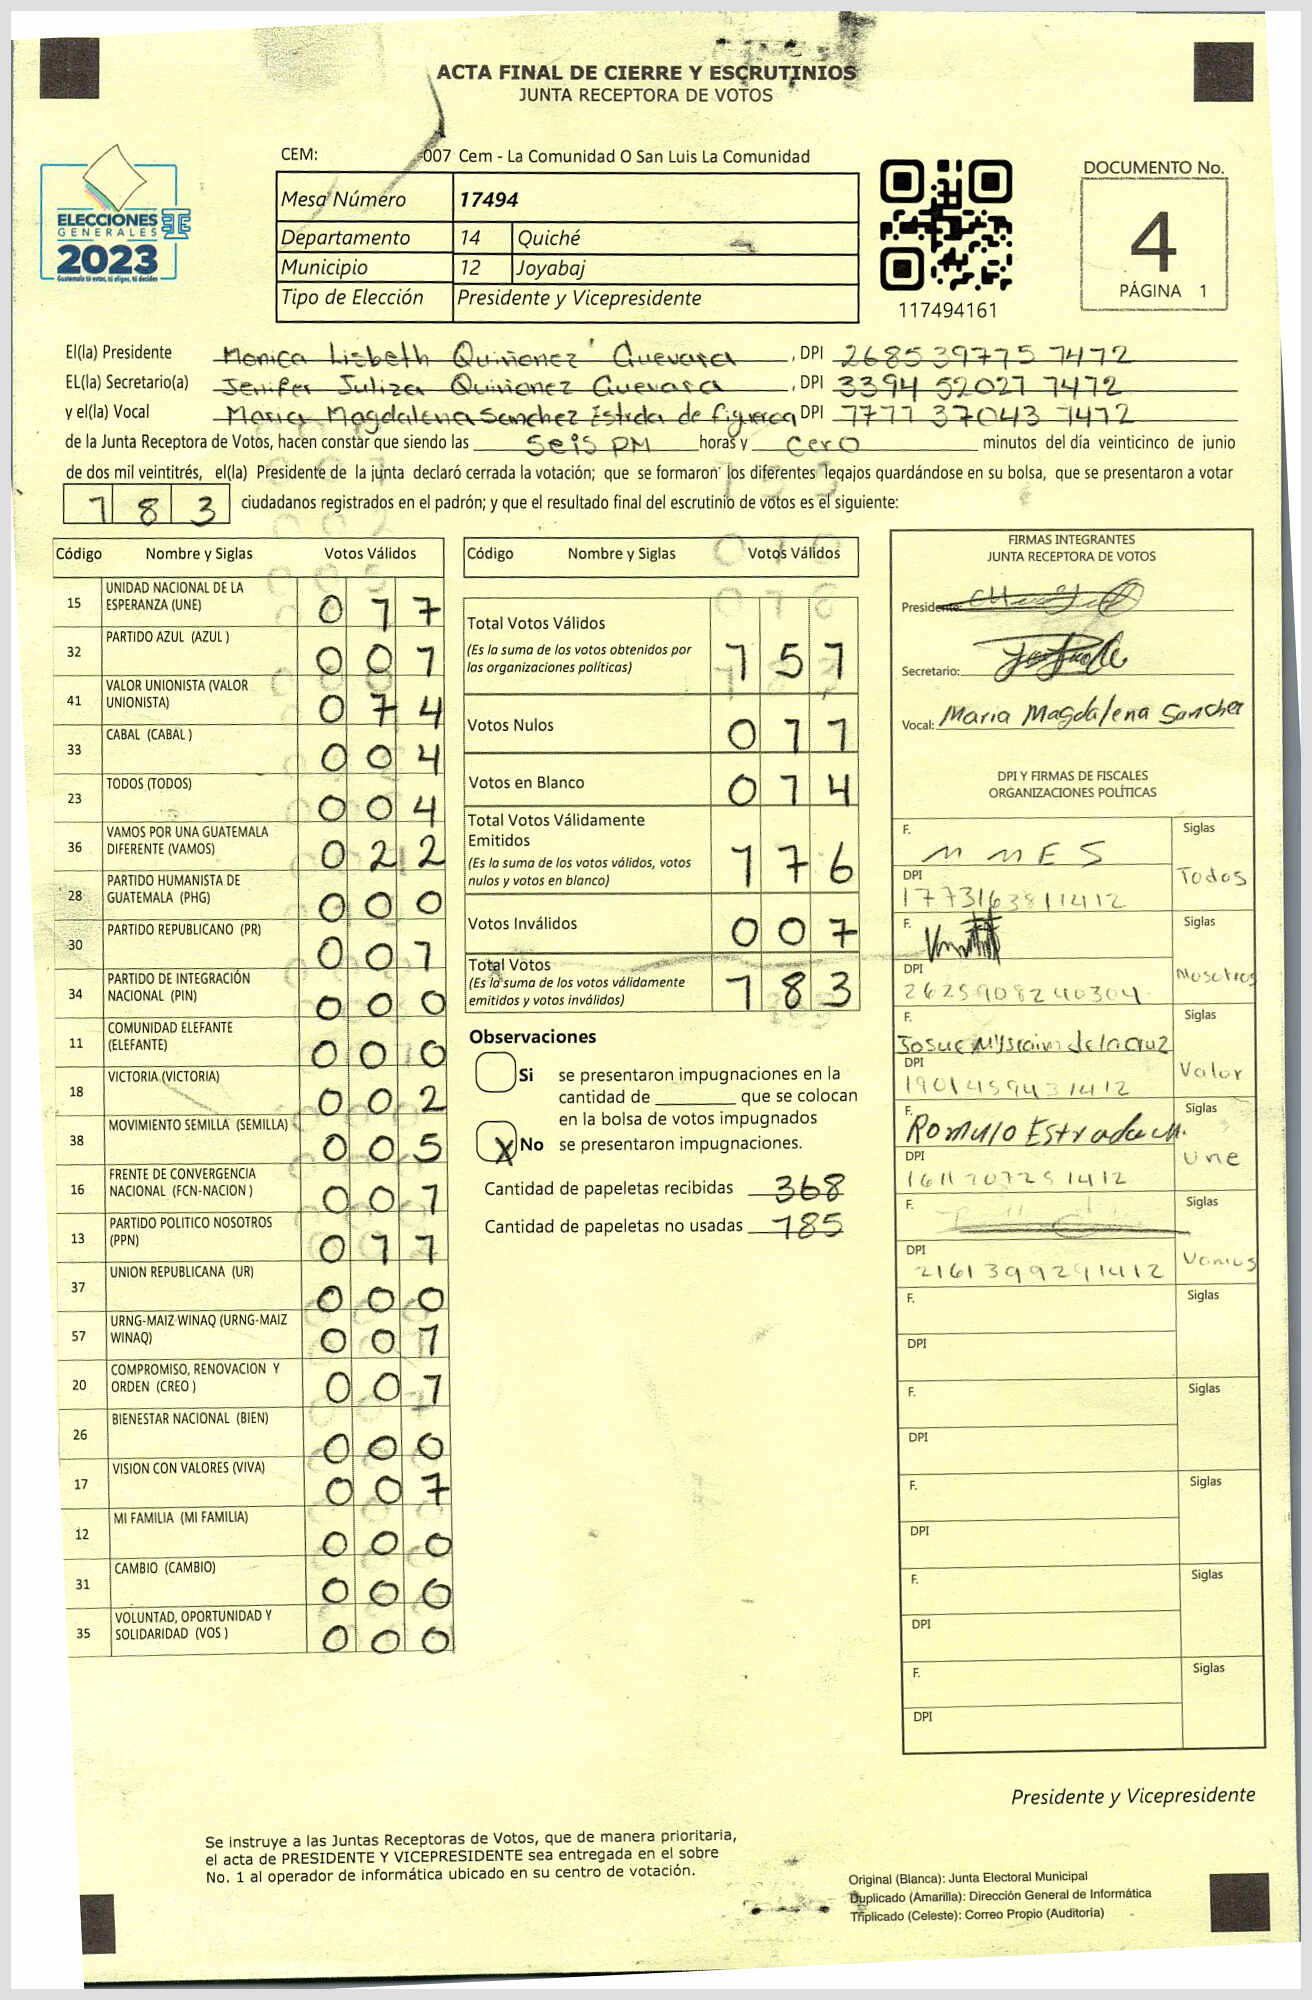 ACTA FINAL DE CIERRE Y ESCRUTINIOS
JUNTA RECEPTORA DE VOTOS
ELECCIONES
GENERALES
2023
Guatemala tú votas, tú eliges, tú decides
CEM: 007 Cem - La Comunidad O San Luis La Comunidad
Mesa Número 17494
Departamento 14 Quiché
Municipio 12 Joyabaj
Tipo de Elección Presidente y Vicepresidente
117494161
DOCUMENTO No.
4
PÁGINA 1
El(la) Presidente Monica Lisbeth Quiñonez Guevara, DPI 2685 39775 1412
EL(la) Secretario(a) Jenifer Juliza Quiñonez Guevara, DPI 3394 52027 1412
y el(la) Vocal Maria Magdalena Sanchez Estrda de figueroa DPI 37043 1412
de la Junta Receptora de Votos, hacen constar que siendo las seis PM horas y cero minutos del día veinticinco de junio
de dos mil veintitrés, el(la) Presidente de la junta declaró cerrada la votación; que se formaron los diferentes legajos quardándose en su bolsa, que se presentaron a votar
183 ciudadanos registrados en el padrón; y que el resultado final del escrutinio de votos es el siguiente:
Código Nombre y Siglas Votos Válidos
15 UNIDAD NACIONAL DE LA ESPERANZA (UNE) 017
32 PARTIDO AZUL (AZUL ) 001
41 VALOR UNIONISTA (VALOR UNIONISTA) 074
33 CABAL (CABAL ) 004
23 TODOS (TODOS) 004
36 VAMOS POR UNA GUATEMALA DIFERENTE (VAMOS) 022
28 PARTIDO HUMANISTA DE GUATEMALA (PHG) 000
30 PARTIDO REPUBLICANO (PR) 001
34 PARTIDO DE INTEGRACIÓN NACIONAL (PIN) 000
11 COMUNIDAD ELEFANTE (ELEFANTE) 000
18 VICTORIA (VICTORIA) 002
38 MOVIMIENTO SEMILLA (SEMILLA) 005
16 FRENTE DE CONVERGENCIA NACIONAL (FCN-NACION ) 001
13 PARTIDO POLITICO NOSOTROS (PPN) 011
37 UNION REPUBLICANA (UR) 000
57 URNG-MAIZ WINAQ (URNG-MAIZ WINAQ) 001
20 COMPROMISO, RENOVACION Y ORDEN (CREO ) 001
26 BIENESTAR NACIONAL (BIEN) 000
17 VISION CON VALORES (VIVA) 007
12 MI FAMILIA (MI FAMILIA) 000
31 CAMBIO (CAMBIO) 000
35 VOLUNTAD, OPORTUNIDAD Y SOLIDARIDAD (VOS ) 000
Código Nombre y Siglas Votos Válidos
Total Votos Válidos
(Es la suma de los votos obtenidos por las organizaciones políticas) 151
Votos Nulos 011
Votos en Blanco 014
Total Votos Válidamente Emitidos
(Es la suma de los votos válidos, votos nulos y votos en blanco) 176
Votos Inválidos 007
Total Votos
(Es la suma de los votos válidamente emitidos y votos inválidos) 183
Observaciones
Si se presentaron impugnaciones en la
cantidad de ________ que se colocan
en la bolsa de votos impugnados
X No se presentaron impugnaciones.
Cantidad de papeletas recibidas 368
Cantidad de papeletas no usadas 185
FIRMAS INTEGRANTES
JUNTA RECEPTORA DE VOTOS
Presidente:
Secretario:
Vocal: Maria Magdalena Sancher
DPI Y FIRMAS DE FISCALES
ORGANIZACIONES POLÍTICAS
F. Siglas
Todos
DPI
1773163811412
F. Siglas
Nosotros
DPI
2625908240304
F. Siglas
Josue de la cruz
Valor
DPI
1901459431412
F. Siglas
Romulo Estrada M.
Une
DPI
1611707251412
F. Siglas
Vamos
DPI
2161399291412
F. Siglas
DPI
F. Siglas
DPI
F. Siglas
DPI
F. Siglas
DPI
F. Siglas
DPI
Presidente y Vicepresidente
Se instruye a las Juntas Receptoras de Votos, que de manera prioritaria,
el acta de PRESIDENTE Y VICEPRESIDENTE sea entregada en el sobre
No. 1 al operador de informática ubicado en su centro de votación.
Original (Blanca): Junta Electoral Municipal
Duplicado (Amarilla): Dirección General de Informática
Triplicado (Celeste): Correo Propio (Auditoría)